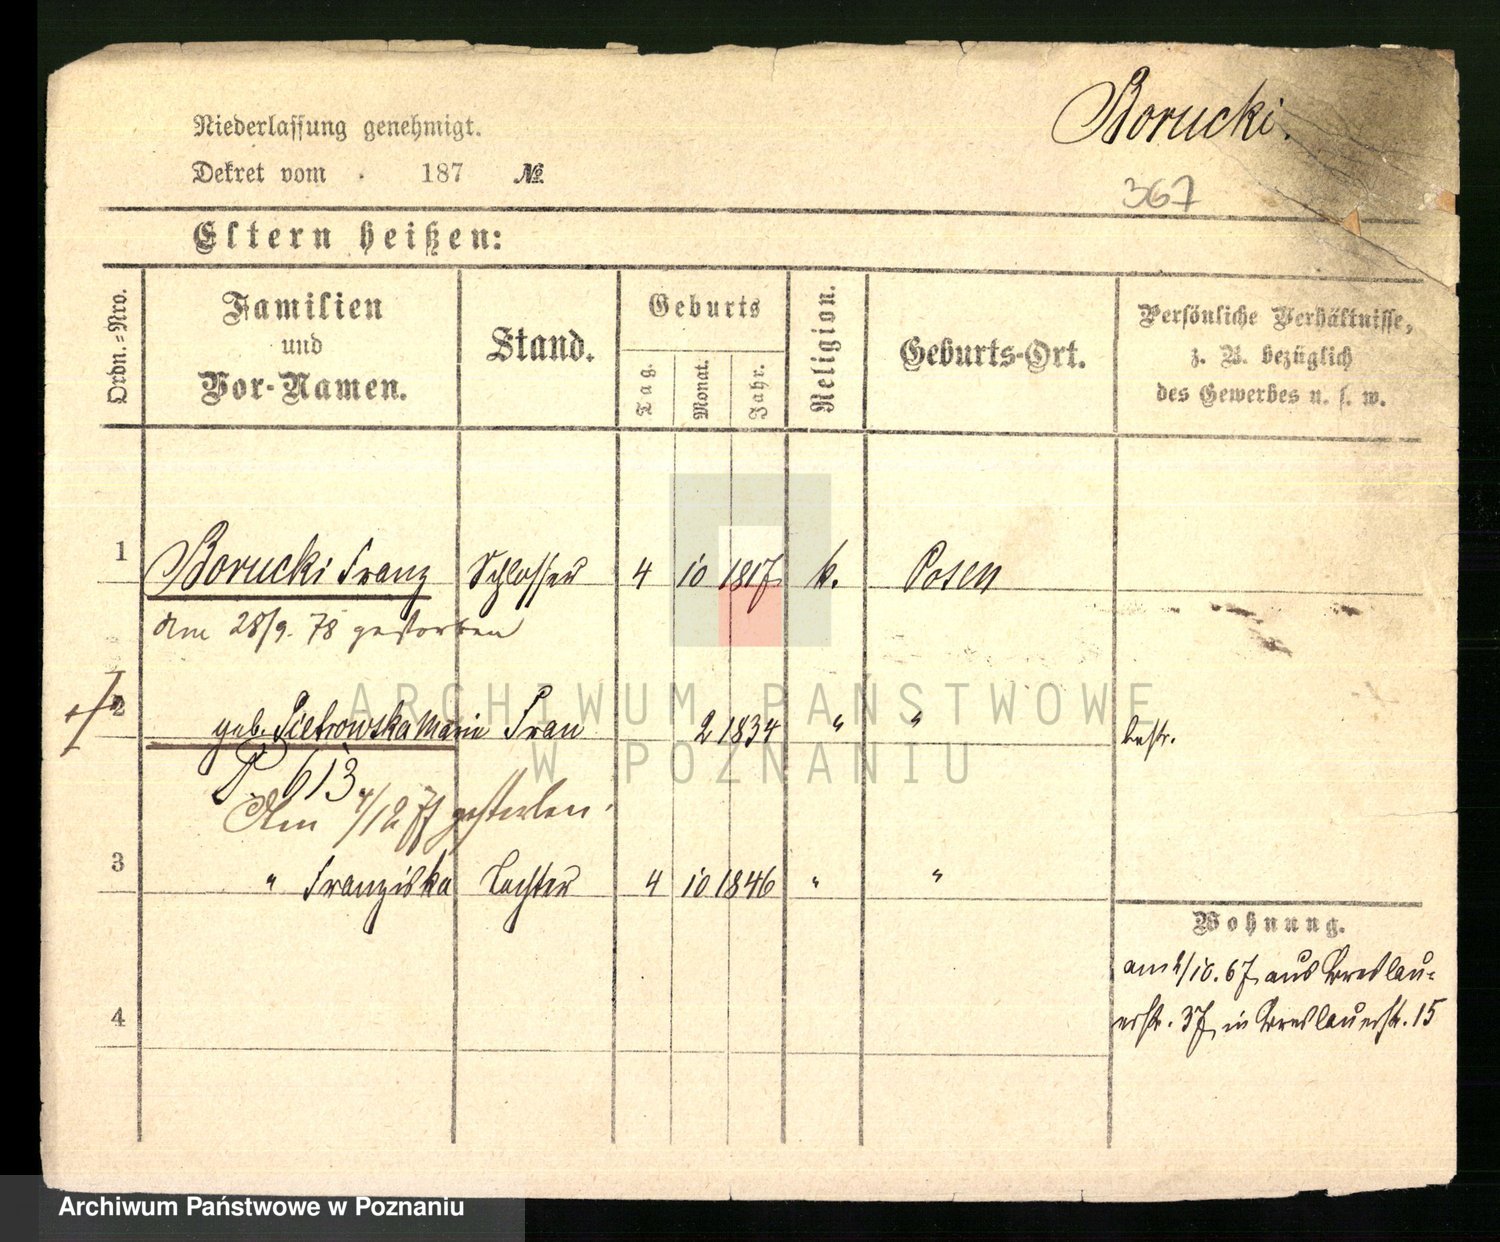 Borucki.
Niederlassung genehmigt.
Dekret vom . 187 №
367
Eltern heißen:
Ordn.=Nro.
Familien
und
Vor-Namen.
Stand.
Geburts
Tag.
Monat.
Jahr.
Religion.
Geburts-Ort.
Persönliche Verhältnisse,
z. B. bezüglich
des Gewerbes u. s. w.
1 Borucki Franz Schlosser 4 10 1817 k. Posen
Am 28/9. 78 gestorben
2 geb. Pietrowska Marie Frau 2 1834 " "
P 613
Am 4/12 77 gestorben.
3 " Franziska Tochter 4 10 1846 " "
Wohnung.
am 2/10. 67 aus Breslau-
erstr. 37 in Breslauerstr. 15
4
ARCHIWUM PAŃSTWOWE
W POZNANIU
Archiwum Państwowe w Poznaniu